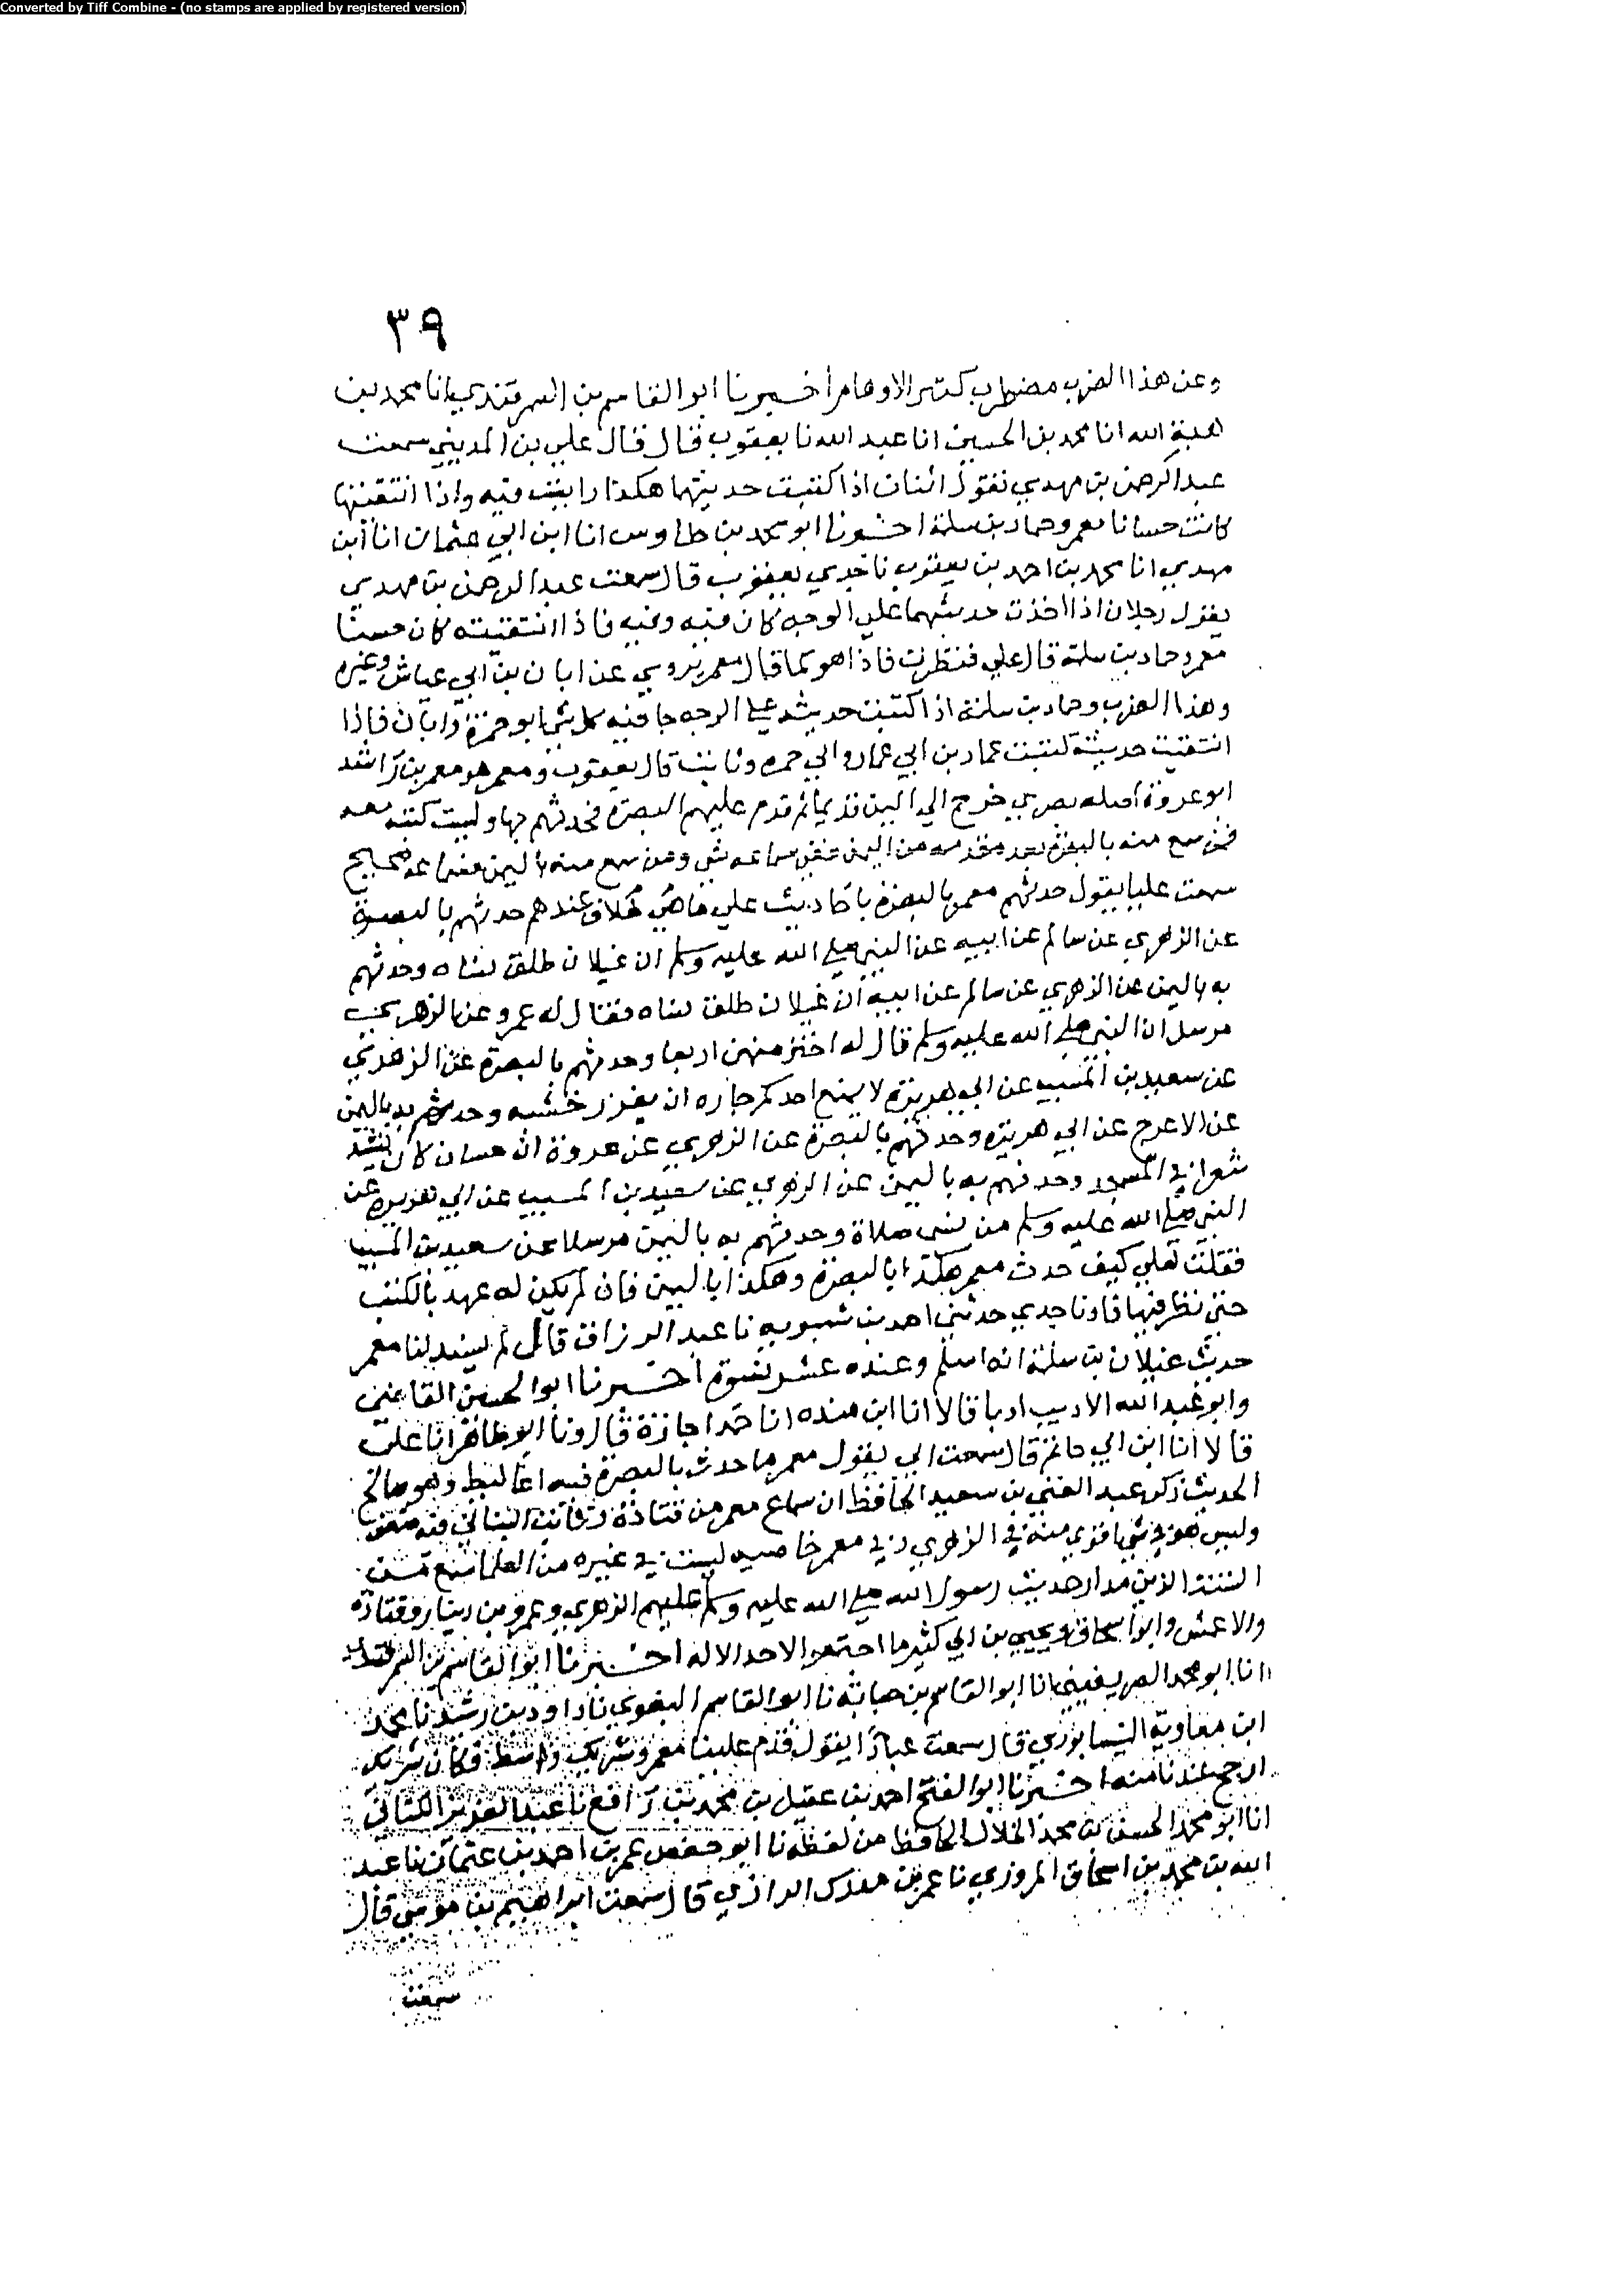 Converted by Tiff Combine - (no stamps are applied by registered version)
٣٩
وعن هذا الضرب مضطرب كثير الاوهام اخبرنا ابو القاسم بن السمرقندي انا محمد بن
هبة الله انا محمد بن الحسين انا عبد الله نا يعقوب قال قال علي بن المديني سمعت
عبد الرحمن بن مهدي يقول اثنان اذا كتبت حديثهما هكذا رايت فيه واذا انتقيتها
كانت حسانا معمر وحماد بن سلمة اخبرنا ابو محمد بن طاوس انا ابن ابي عثمان انا ابن
مهدي انا محمد بن احمد بن يعقوب نا جدي يعقوب قال سمعت عبد الرحمن بن مهدي
يقول رجلان اذا اخذت حديثهما علي الوجه كان فيه وفيه فاذا انتقيته كان حسنا
معمر وحماد بن سلمة قال علي فنظرت فاذا هو كما قال معمر يروي عن ابان بن ابي عياش وغيره
وهذا الضرب وحماد بن سلمة اذا كتبت حديثه علي الوجه جا فيه كل شيا ابو حمزة وابان فاذا
انتقيت حديثه كتبت عمار بن ابي عمار وابي حمره وثابت قال يعقوب ومعمر هو معمر بن راشد
ابو عروة اصله بصري خرج الي اليمن قديما ثم قدم عليهم البصرة فحدثهم بها وليست كتبه معه
فمن سمع منه بالبصرة بعد مقدمه من اليمن ففي سماعه شي ومن سمع منه باليمن فسماعه صحيح
سمعت عليا يقول حدثهم معمر بالبصرة باحاديث علي ما هي خلاف عندهم حدثهم بالبصرة
عن الزهري عن سالم عن ابيه عن النبي صلي الله عليه وسلم ان غيلان طلق نساه وحدثهم
به باليمن عن الزهري عن سالم عن ابيه ان غيلان طلق نساه فقال له عمر وعن الزهري
مرسل ان النبي صلي الله عليه وسلم قال له اختر منهن اربعا وحدثهم بالبصرة عن الزهري
عن سعيد بن المسيب عن ابي هريرة لا يمنع احدكم جاره ان يغرز خشبه وحدثهم به باليمن
عن الاعرج عن ابي هريره وحدثهم بالبصرة عن الزهري عن عروة ان حسان كان ينشد
شعرا في المسجد وحدثهم به باليمن عن الزهري عن سعيد بن المسيب عن ابي هريره عن
النبي صلي الله عليه وسلم من نسي صلاة وحدثهم به باليمن مرسلا عن سعيد بن المسيب
فقلت لعلي كيف حدث معمر هكذا بالبصرة وهكذا باليمن قال لم يكن له عهد بالكتب
حتي نظر فيها قال ونا جدي حدثني احمد بن شبويه نا عبد الرزاق قال لم يسند لنا معمر
حديث غيلان بن سلمة انه اسلم وعنده عشر نسوة اخبرنا ابو الحسين القاضي
وابو عبد الله الاديب قالا انا ابن منده انا حمد اجازة قال ونا ابو طاهر انا علي
قالا انا ابن ابي حاتم قال سمعت ابي يقول معمر ما حدث بالبصرة فيه اغاليط وهو صالح
الحديث ذكر عبد الغني بن سعيد الحافظ ان سماع معمر من قتادة وثابت البناني فيه ضعف
وليس هو في شي اقوي منه في الزهري وفي معمر خاصيه ليست في غيره من العلما سمع من
الستة الذين مدار حديث رسول الله صلي الله عليه وسلم عليهم الزهري وعمرو بن دينار وقتادة
والاعمش وابو اسحاق ويحيي بن ابي كثير ما اجتمعوا لاحد الا له اخبرنا ابو القاسم بن السمرقندي
انا ابو محمد الصريفيني انا ابو القاسم بن حبابة نا ابو القاسم البغوي نا داود بن رشيد نا محمد
ابن معاوية النيسابوري قال سمعت عبادا يقول قدم علينا معمر وشريك واسط فكان شريك
ارجح عندنا منه اخبرنا ابو الفتح احمد بن عقيل بن محمد بن رافع نا عبد العزيز الكتاني
انا ابو محمد الحسن بن محمد الخلال الحافظ من لفظه نا ابو حفص عمر بن احمد بن عثمان نا عبد
الله بن محمد بن اسحاق المروزي نا عمر بن مدرك الرازي قال سمعت ابراهيم بن موسي قال
سمعت